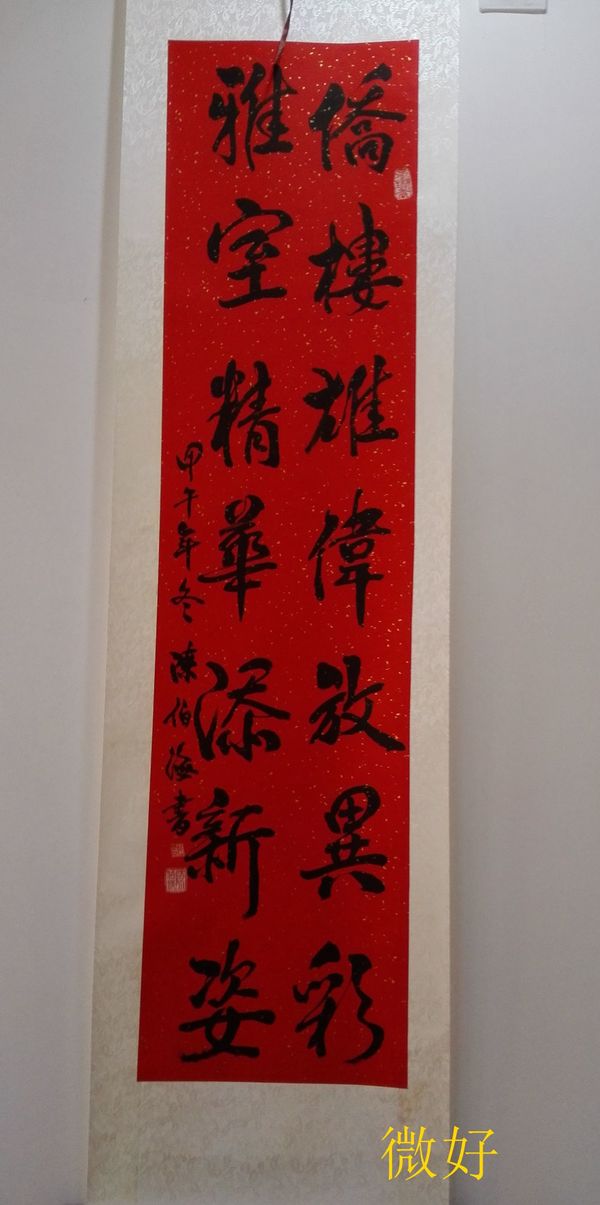 僑樓雄偉放異彩
雅室精華添新姿
甲午年冬 陳伯海書
微好